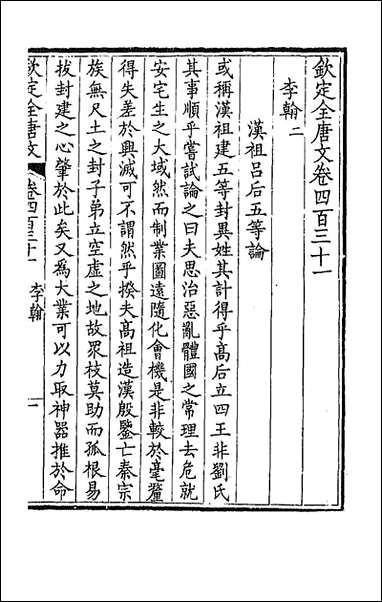 欽定全唐文卷四百三十一
李翰二
漢祖呂后五等論
或稱漢祖建五等封異姓其計得乎高后立四王非劉氏
其事順乎嘗試論之曰夫思治惡亂體國之常理去危就
安宅生之大域然而制業圖遠隨化會機是非較於毫釐
得失差於興滅可不謂然乎揆夫高祖造漢殷鑒亡秦宗
族無尺土之封子弟立空虛之地故眾枝莫助而孤根易
拔封建之心肇於此矣又為大業可以力取神器推於命
欽定全唐文 卷四百三十一 李翰 一